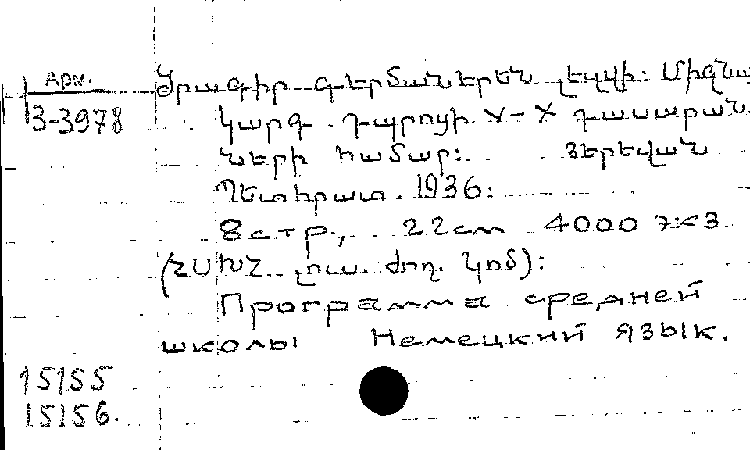 Арм.
3-3978
Ծրագիր գերմաներեն լեզվի: Միջնա
կարգ. դպրոցի V-X դասարան
ների համար: Յերեվան
Պետհրատ. 1936:
8 стр., 22 см 4000 экз
(ՀՍԽՀ լուս. ժող. կոմ):
Программа средней
школы Немецкий язык.
15155
15156.